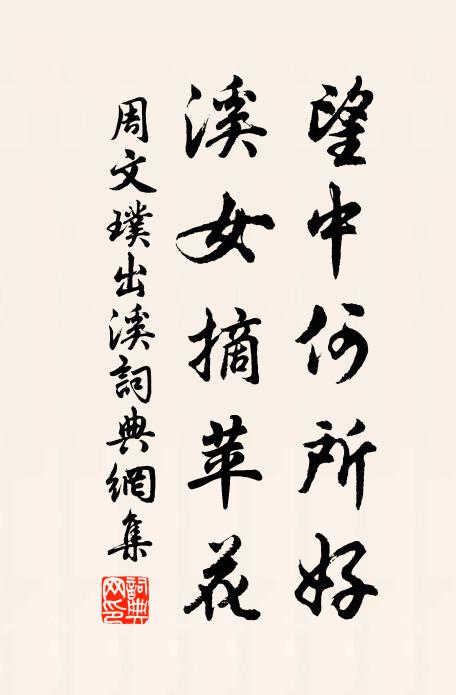 望中何所好
溪女摘苹花
周文璞出溪詞典網集
詞典網印